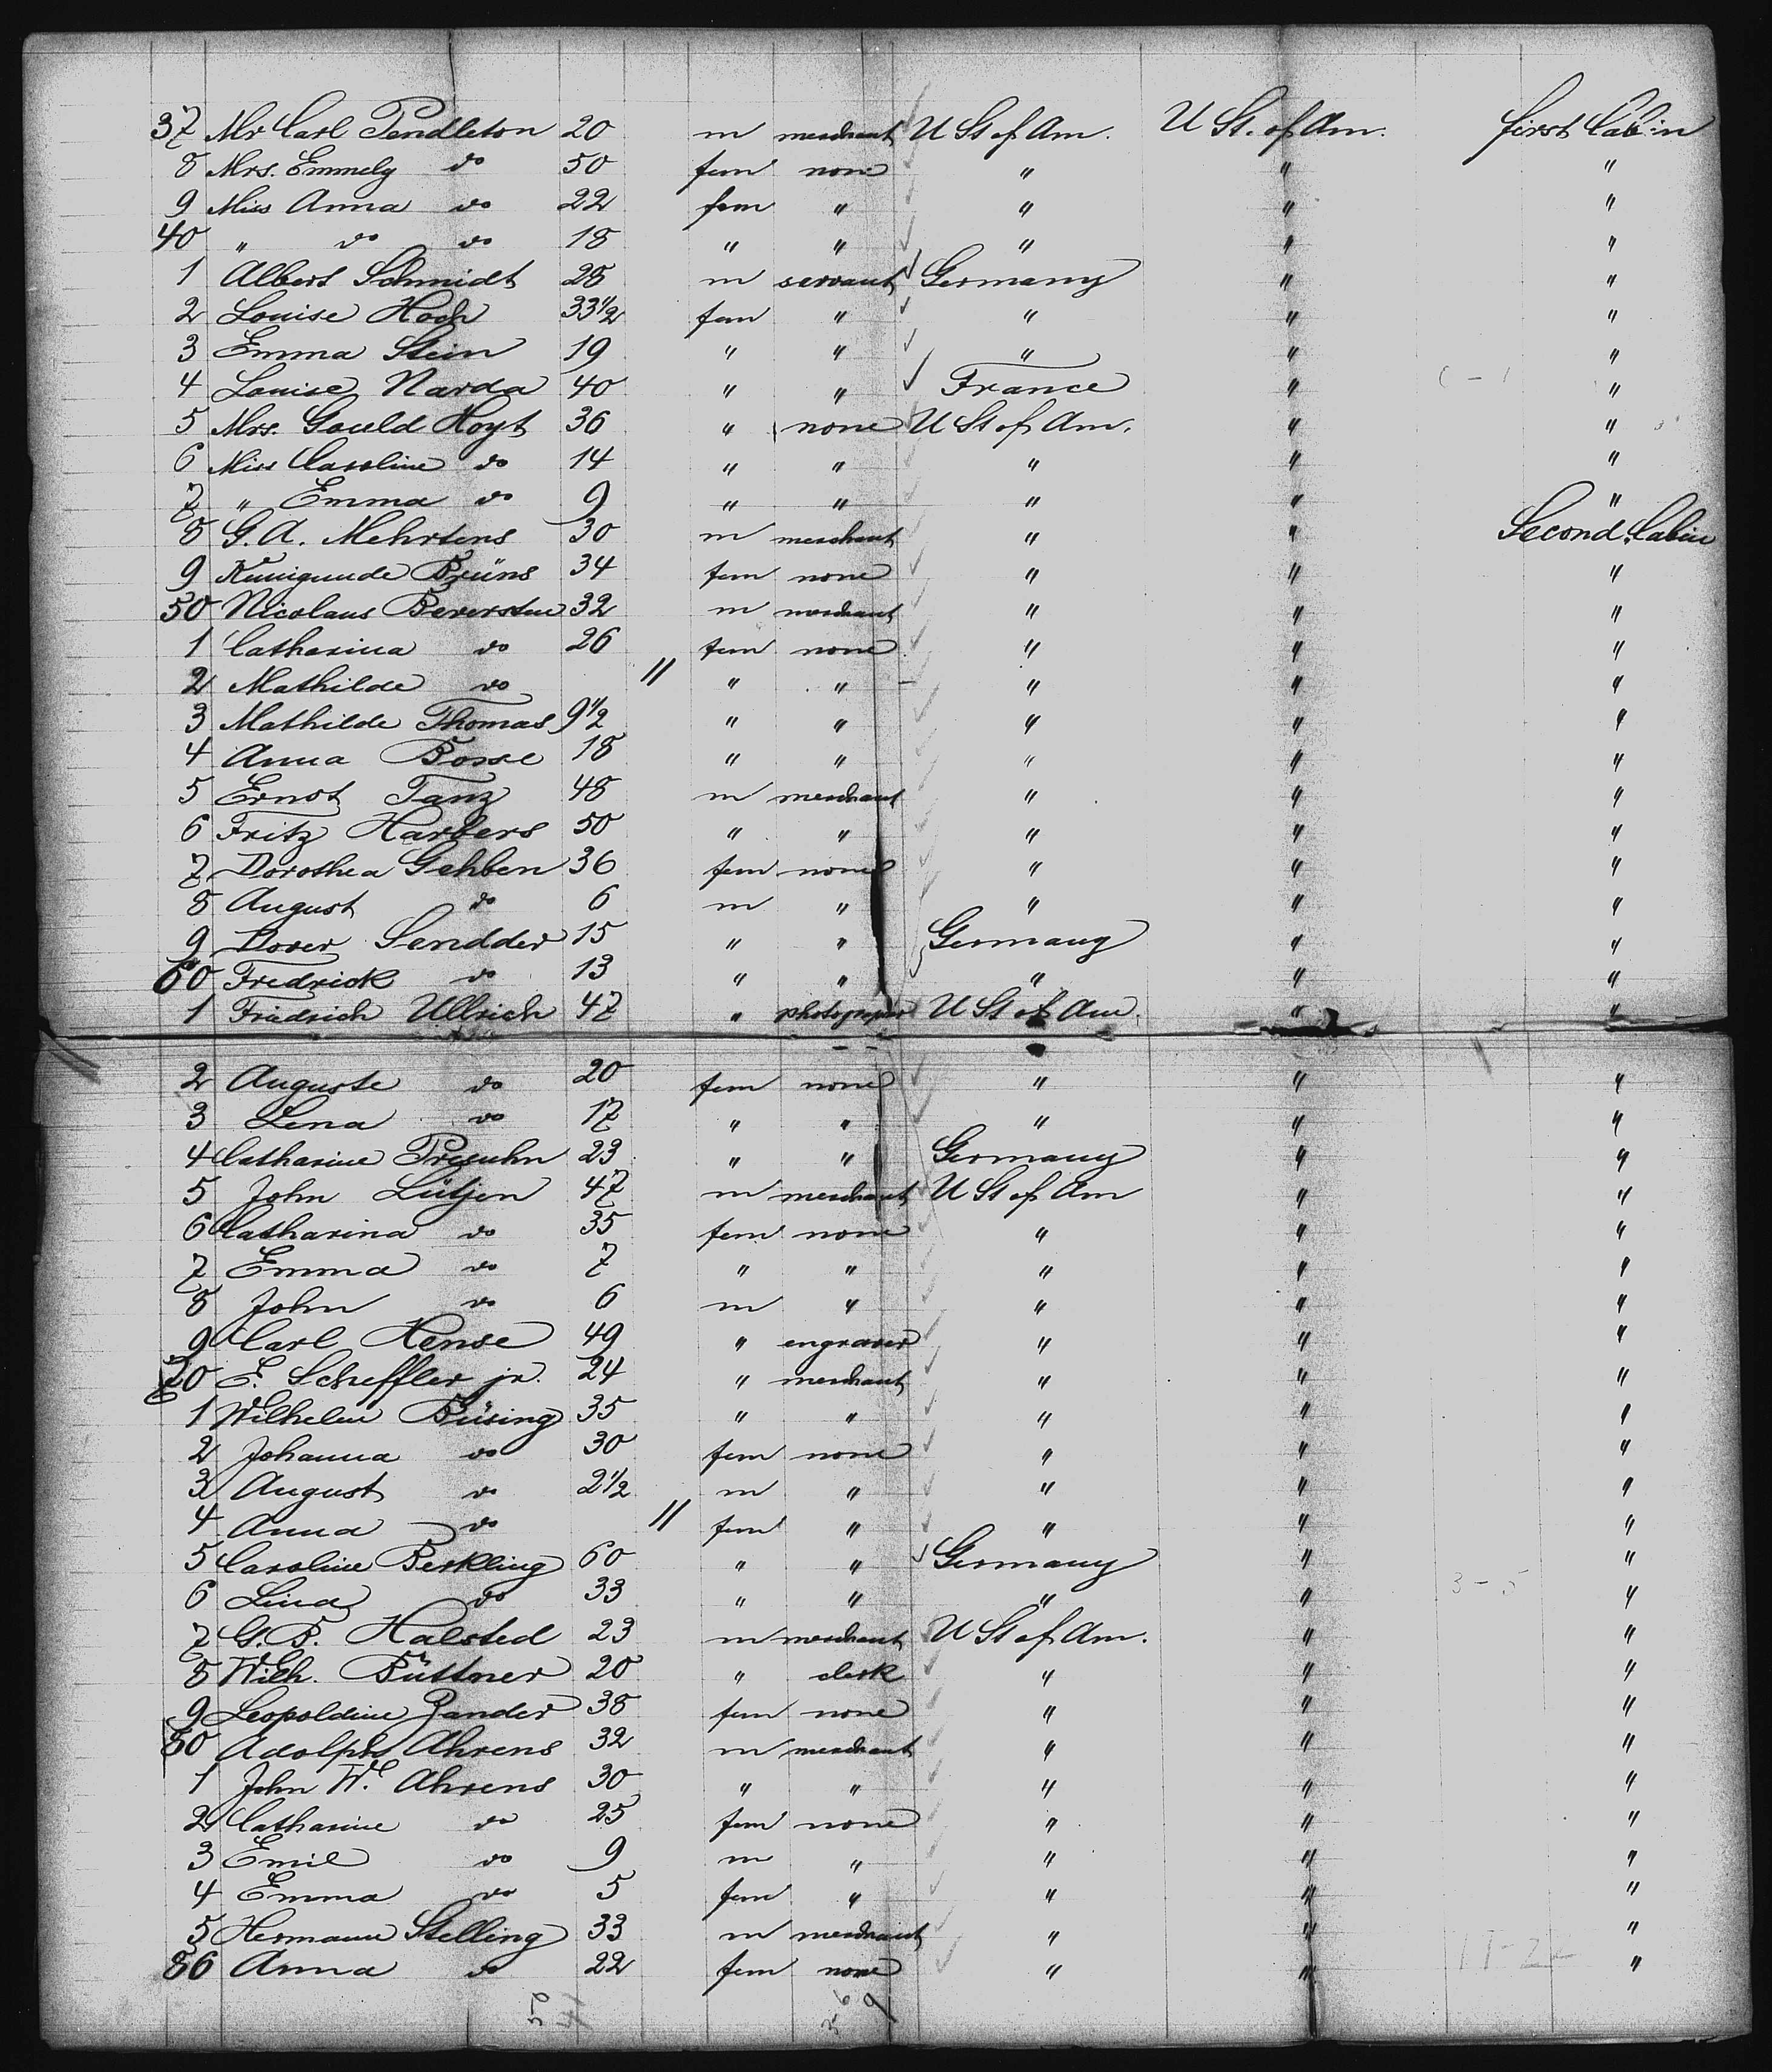 37 Mr Carl Pendleton 20 m merchant U St of Am. U St. of Am. first Cabin
8 Mrs. Emmely do 50 fem none " " "
9 Miss Anna do 22 fem " " " "
40 " do do 18 " " " " "
1 Albert Schmidt 28 m servant Germany " "
2 Louise Hoch 33 1/2 fem " " " "
3 Emma Stein 19 " " " " "
4 Louise Narda 40 " " France " "
5 Mrs. Gould Hoyt 36 " none U St of Am. " "
6 Miss Caroline do 14 " " " " "
7 " Emma do 9 " " " " "
8 G. A. Mehrtens 30 m merchant " " Second Cabin
9 Kunigunde Brüns 34 fem none " " "
50 Nicolaus Beversten 32 m merchant " " "
1 Catharina do 26 fem none " " "
2 Mathilde do // " " " " "
3 Mathilde Thomas 9 1/2 " " " " "
4 Anna Bosse 18 " " " " "
5 Ernst Tanz 48 m merchant " " "
6 Fritz Harbers 50 " " " " "
7 Dorothea Gehben 36 fem none " " "
8 August do 6 m " " " "
9 Dorer Sendder 15 " " Germany " "
60 Fredrick do 13 " " " " "
1 Friedrich Ullrich 47 " photograper U St of Am. " "
2 Auguste do 20 fem none " " "
3 Lena do 17 " " " " "
4 Catharine Presuhn 23 " " Germany " "
5 John Lütjen 47 m merchant U St of Am " "
6 Catharina do 35 fem none " " "
7 Emma do 7 " " " " "
8 John do 6 m " " " "
9 Carl Hense 49 " engraver " " "
70 E. Scheffler jr. 24 " merchant " " "
1 Wilhelm Büsing 35 " " " " "
2 Johanna do 30 fem none " " "
3 August do 2 1/2 m " " " "
4 Anna do // fem " " " "
5 Caroline Berkling 60 " " Germany " "
6 Lina do 33 " " " " 3-5 "
7 G. B. Halsted 23 m merchant U St of Am. " "
8 Wilh. Büttner 20 " clerk " " "
9 Leopoldine Zander 38 fem none " " "
80 Adolph Ahrens 32 m merchant " " "
1 John W. Ahrens 30 " " " " "
2 Catharine do 25 fem none " " "
3 Emil do 9 m " " " "
4 Emma do 5 fem " " " "
5 Hermann Stelling 33 m merchant " " "
86 Anna do 22 fem none " " "